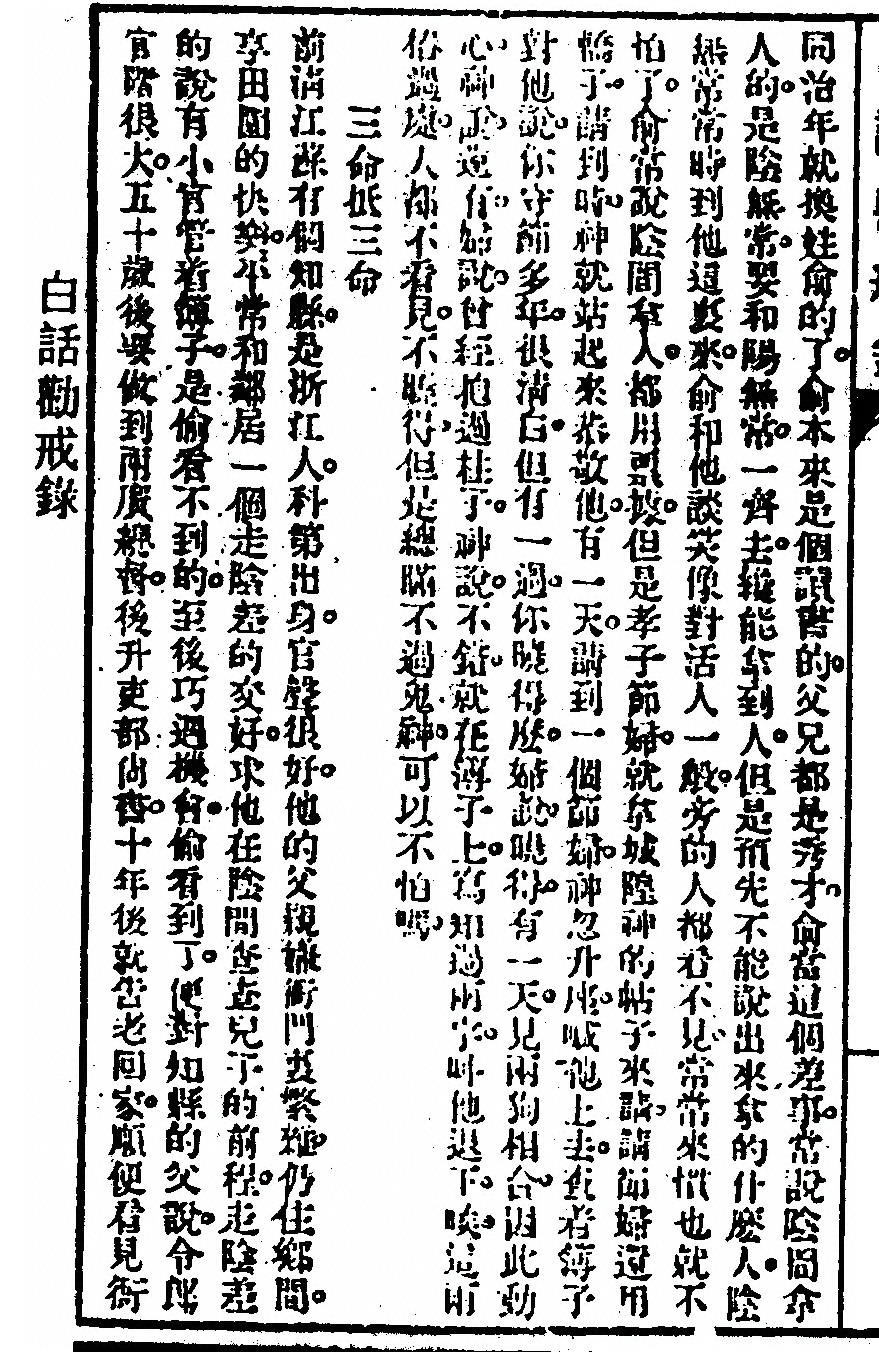 同治年就換姓俞的了。俞本來是個讀書的。父兄都是秀才。俞當這個差事。常說陰間拿
人的。是陰無常。要和陽無常。一齊去。纔能拿到人。但是預先不能說出來拿的什麼人。陰
無常常時到他這裏來。俞和他談笑像對活人一般。旁的人都看不見。常常來慣也就不
怕了。俞常說陰間拿人。都用票。但是孝子節婦。就拿城隍神的帖子來請。請節婦還用
轎子。請到時。神就站起來恭敬他。有一天。請到一個節婦。神忽升座。喊他上去。查着簿子
對他說。你守節多年。很清白。但有一過。你曉得麼。婦說。曉得。有一天。見兩狗相合。因此動
心。神說。還有。婦說。曾經抱過柱子。神說。不錯。就在簿子上。寫知過兩字。叫他退下。唉。這兩
俗過處。人都不看見。不曉得。但是總瞞不過鬼神。可以不怕嗎。
三命抵三命
前淸江蘇有個知縣。是浙江人。科第出身。官聲很好。他的父親嫌衙門裏繁雜。仍住鄉間。
享田園的快樂。平常和鄰居一個走陰差的交好。求他在陰間查查兒子的前程。走陰差
的說有小官管着簿子。是偷看不到的。至後巧遇機會。偷看到了。便對知縣的父說。令郎
官階很大。五十歲後要做到兩廣總督。後升吏部尚書。十年後就告老回家。順便看見衙
白話勸戒錄